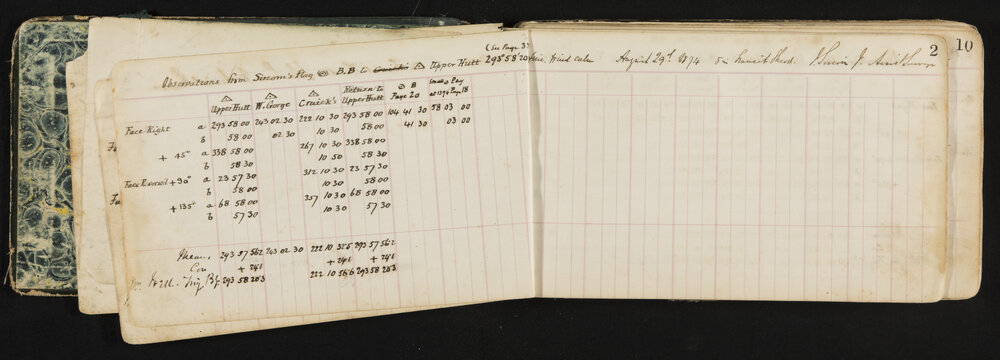 2 10
(See Page 3)
Observations from Siscom's Flag @ B.B to Cruick's △ Upper Hutt 293° 58' 20" Wind calm August 29th 1874 5 in Transit Theod.
△ △ △ △ ⊙ B
Upper Hutt W. Gorge Cruick's Return to Upper Hutt Page 20 at 1374 Page 18
Face Right a 293 58 00 243 02 30 222 10 30 293 58 00 104 41 30 58 03 00
b 58 00 02 30 10 30 58 00 41 30 03 00
+ 45° a 338 58 00 267 10 30 338 58 00
b 58 30 10 50 58 30
Face Reversed +90° a 23 57 30 312 10 30 23 57 30
b 58 00 10 30 58 00
+135° a 68 58 00 357 10 30 68 58 00
b 57 30 10 30 57 30
Means 293 57 56.2 243 02 30 222 10 32.5 293 57 56.2
Corr + 24.1 + 24.1 + 24.1
Trig Bg. 293 58 20.3 222 10 56.6 293 58 20.3